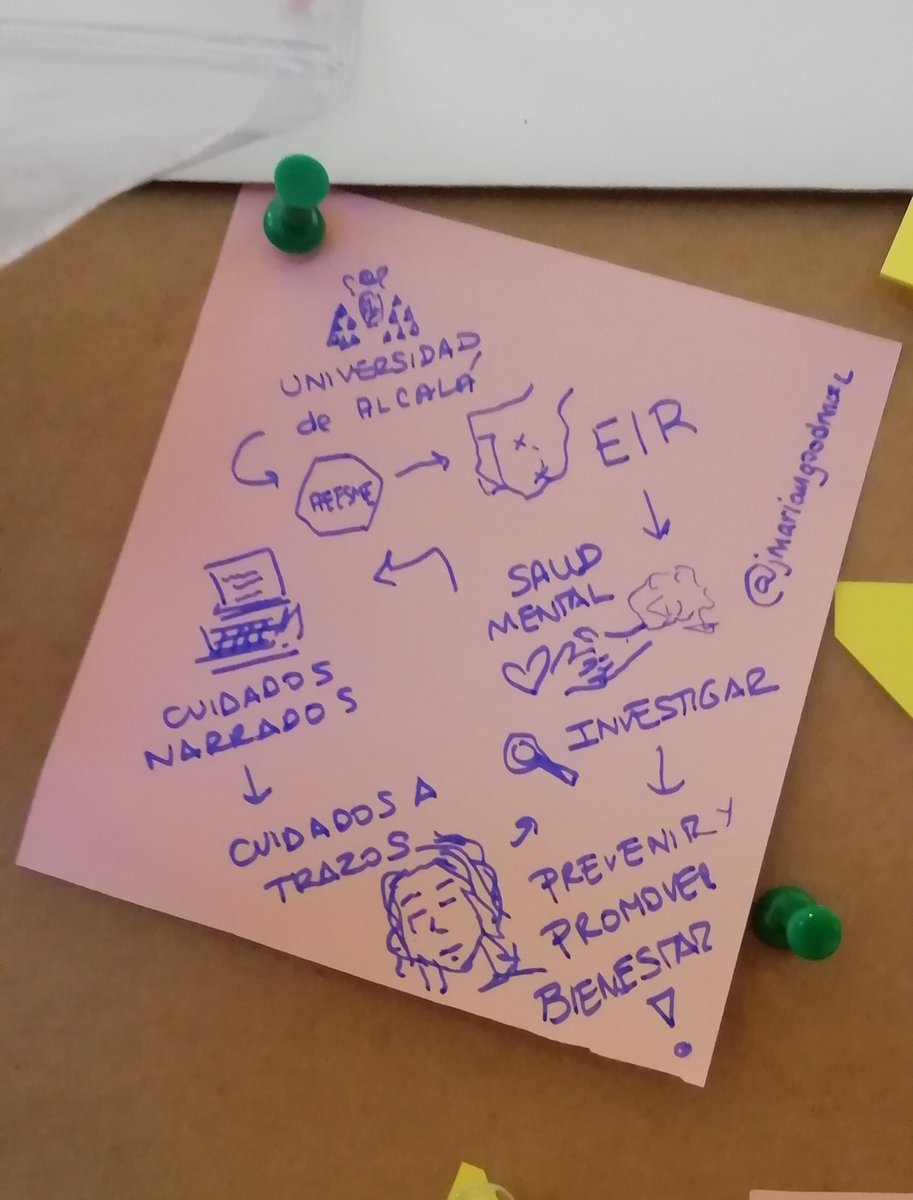 UNIVERSIDAD
de ALCALÁ
EIR
SALUD
MENTAL
CUIDADOS
NARRADOS
INVESTIGAR
CUIDADOS A
TRAZOS
PREVENIR Y
PROMOVER
BIENESTAR
!